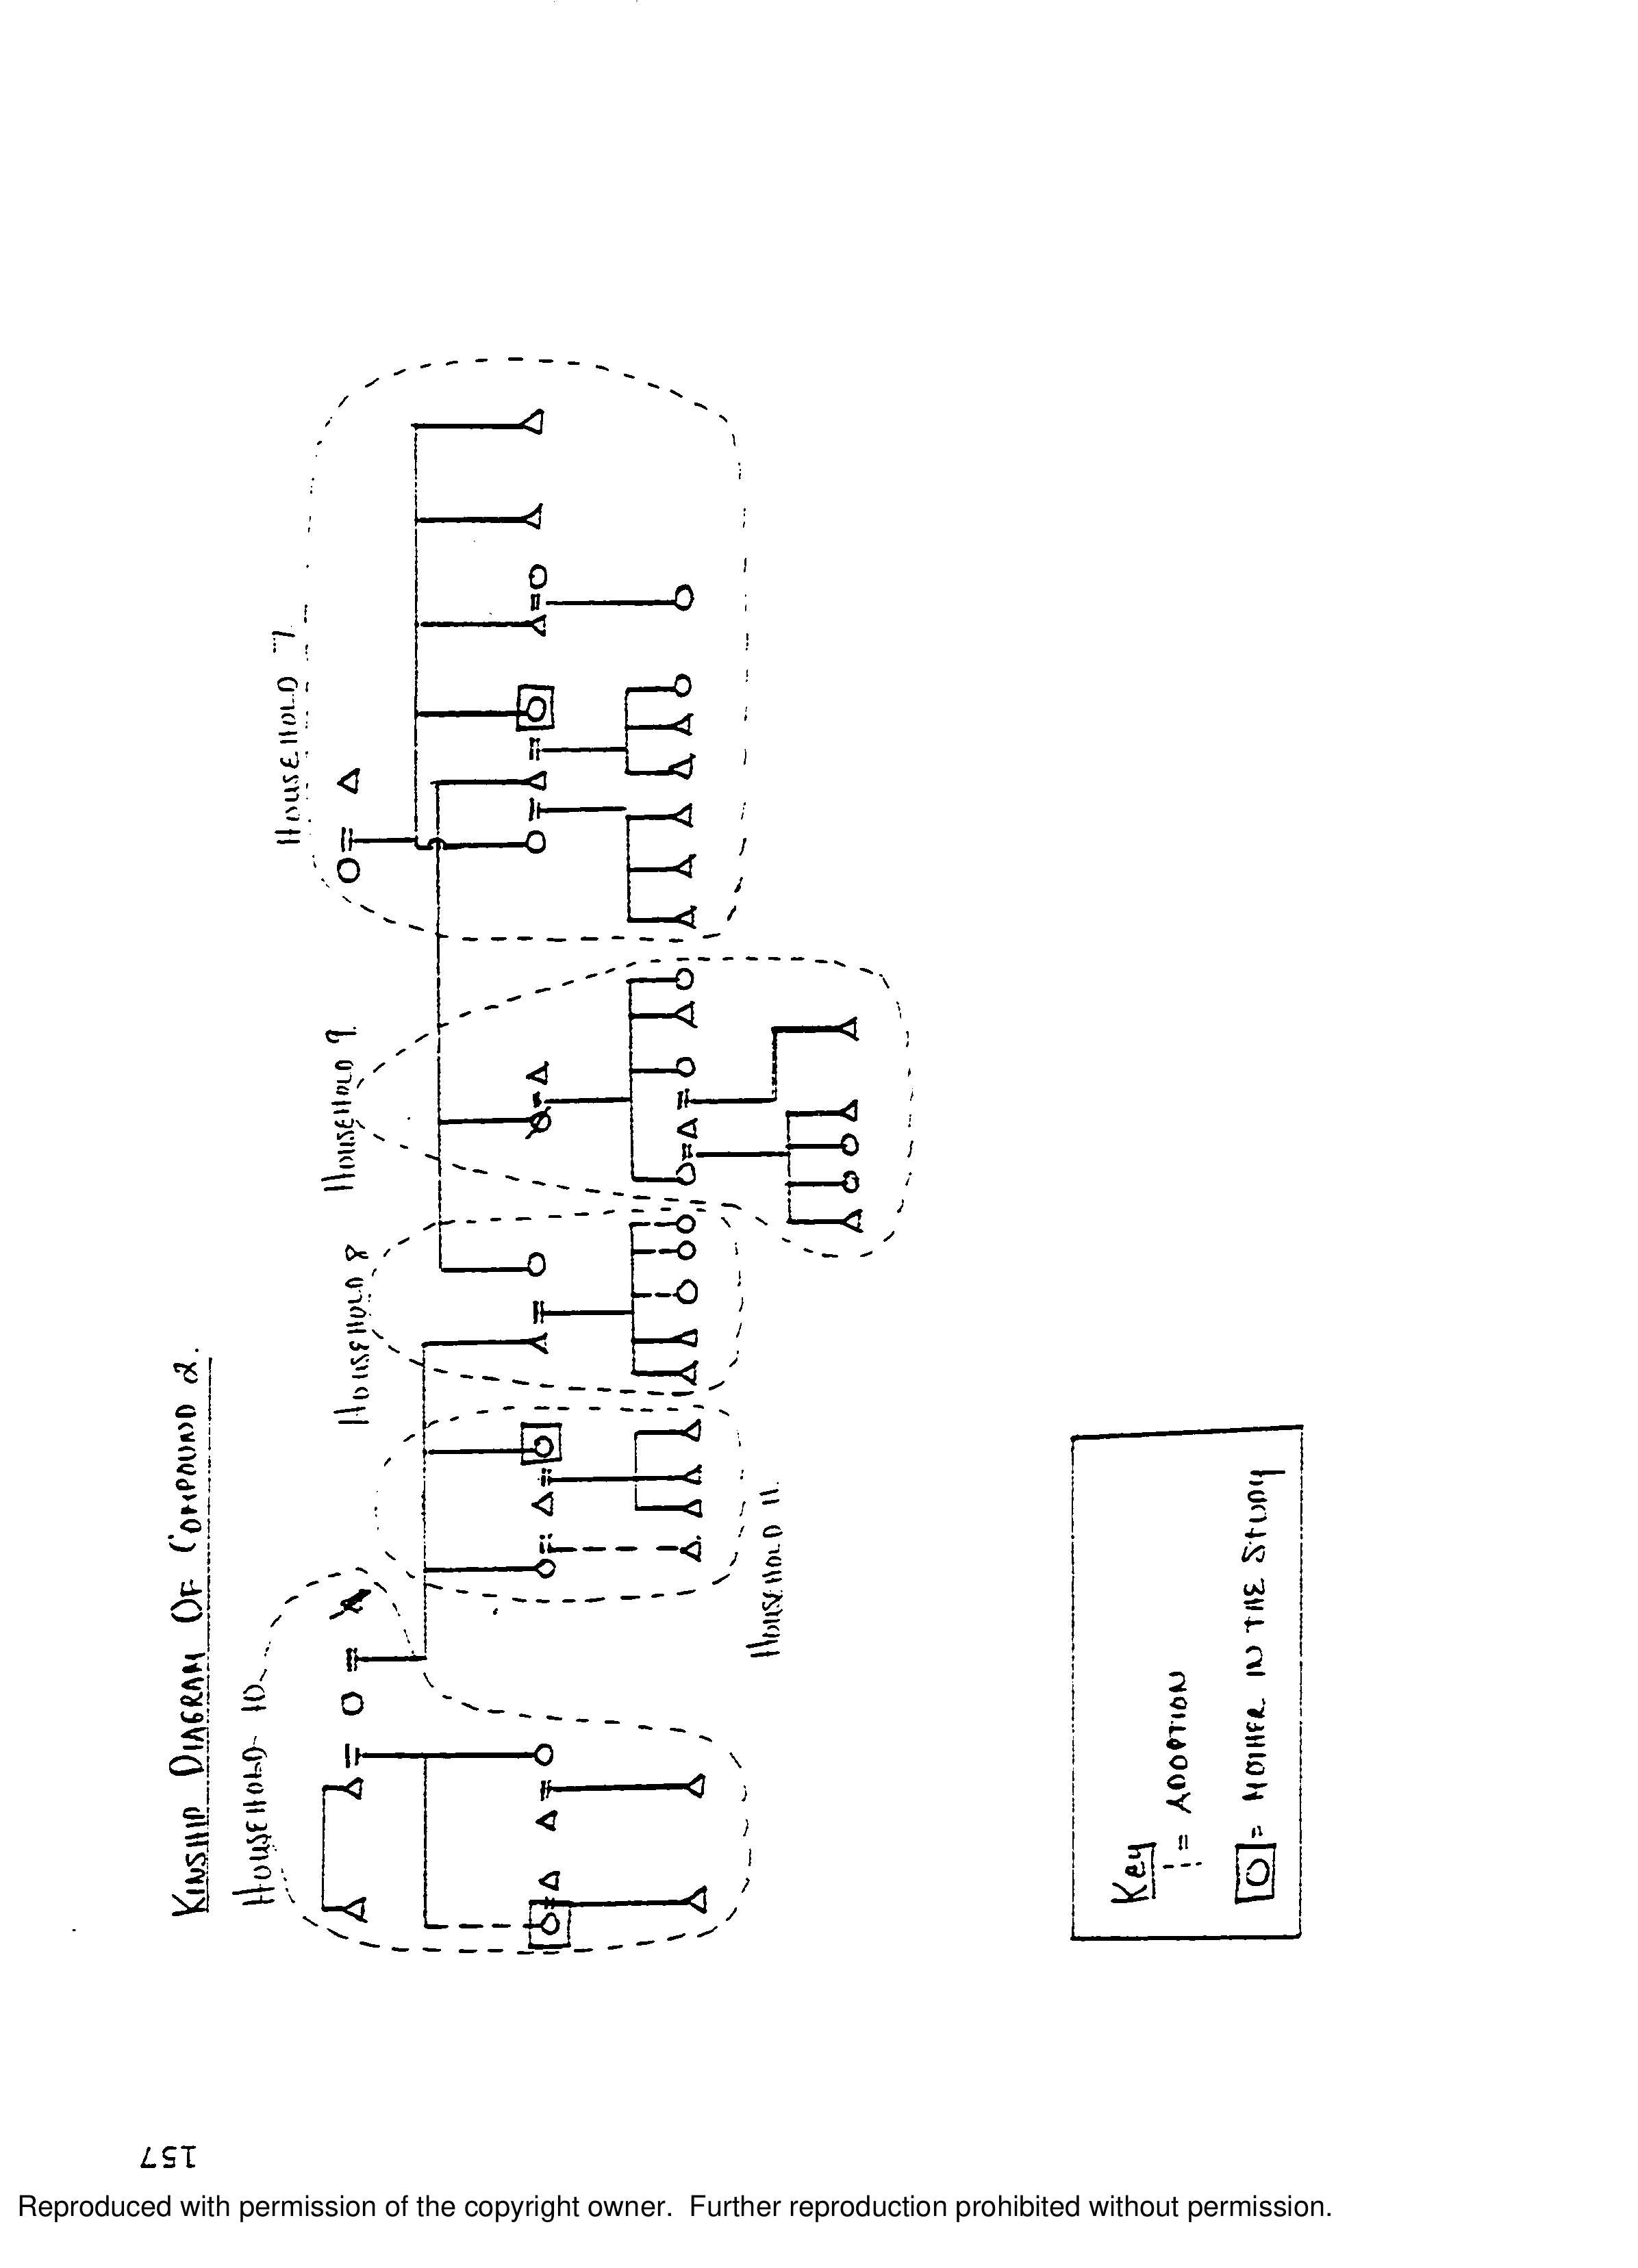 KINSHIP DIAGRAM OF COMPOUND 2.
HOUSEHOLD 10
HOUSEHOLD 8
HOUSEHOLD 9
HOUSEHOLD 7
HOUSEHOLD 11
Key
= ADOPTION
= MOTHER IN THE STUDY
157
Reproduced with permission of the copyright owner. Further reproduction prohibited without permission.